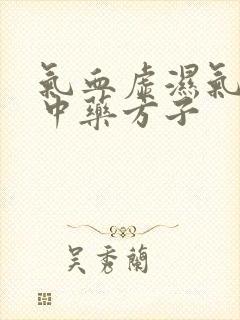 氣血虛濕氣
中藥方子
吳秀蘭